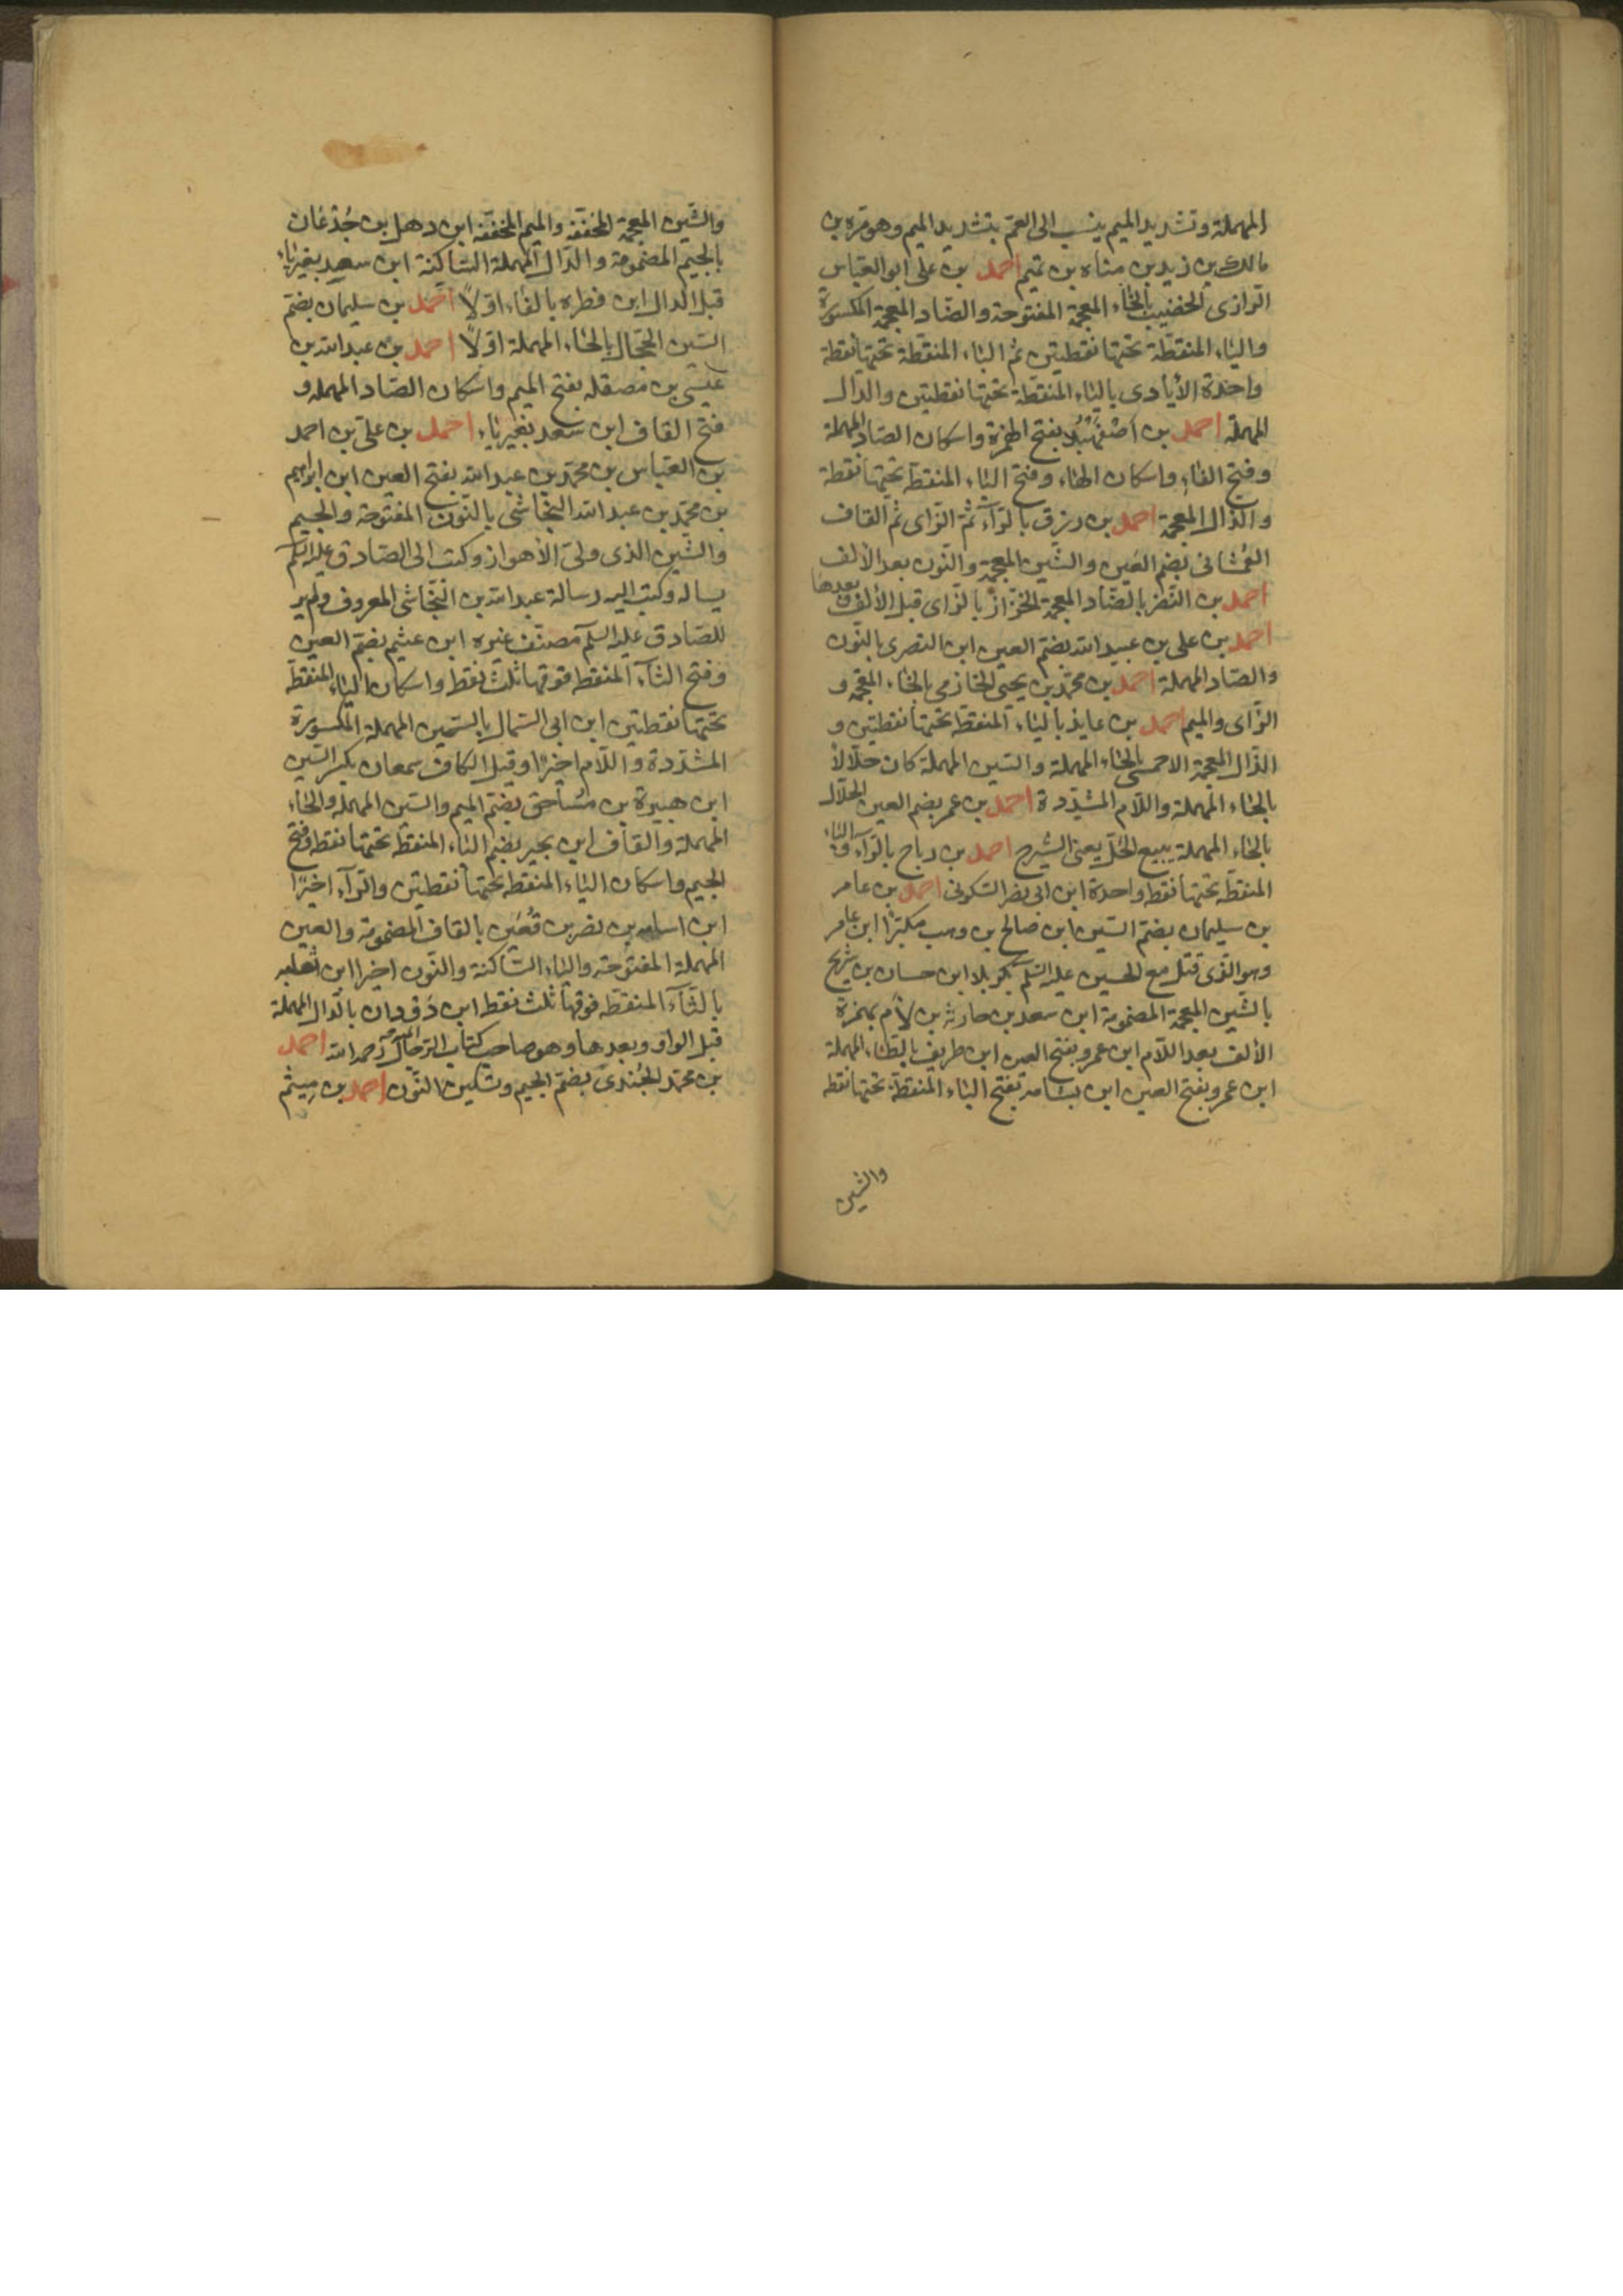 المهملة وتشديد الميم ينسب الى العم بتشديد الميم وهو مرة بن
مالك بن زيد بن مناه بن تميم احمد بن على ابو العباس
الرازى الخضيب بالخاء المعجمة المفتوحة والضاد المعجمة المكسورة
والياء المنقطة تحتها نقطتين ثم الباء المنقطة تحتها نقطة
واحدة الأيادى بالياء المنقطة تحتها نقطتين والدال
المهملة احمد بن اصفهبذ بفتح الهمزة واسكان الصاد المهملة
وفتح الفاء واسكان الهاء وفتح الباء المنقطة تحتها نقطة
والذال المعجمة احمد بن رزق بالراء ثم الزاى ثم القاف
الغشانى بضم الغين والشين المعجمة والنون بعد الألف
احمد بن النضر بالضاد المعجمة الخزاز بالزاى قبل الألف وبعدها
احمد بن على بن عبيد الله بضم العين ابن النصرى بالنون
والصاد المهملة احمد بن محمد بن يحيى الخازمى بالخاء المعجمة و
الزاى والميم احمد بن عايذ بالياء المنقطة تحتها نقطتين و
الذال المعجمة الاحمسى بالحاء المهملة والسين المهملة كان حلالا
بالحاء المهملة واللام المشددة احمد بن عمر بضم العين الحلال
بالحاء المهملة يبيع الحل يعنى الشيرج احمد بن رباح بالراء والباء
المنقطة تحتها نقطة واحدة ابن ابى نصر السكونى احمد بن عامر
بن سليمان بضم السين ابن صالح بن وهب مكبرا ابن عامر
وهو الذى قتل مع الحسين عليه السلم بكربلا ابن حسان بن شريح
بالشين المعجمة المضمومة ابن سعد بن حارثه بن لأم بهمزة
الألف بعد اللام ابن عمرو بفتح العين ابن طريف بالطاء المهملة
ابن عمرو بفتح العين ابن بشامة بفتح الباء المنقطة تحتها نقطة
والشين
والشين المعجمة المخففه والميم المخففه ابن ذهل بن جدعان
بالجيم المضمومة والدال المهملة الساكنة ابن سعد بغير ياء
قبل الدال ابن فطره بالفاء اولا احمد بن سليمان بضم
السين الحجال بالحاء المهملة اولا احمد بن عبد الله بن
عيسى بن مصقله بفتح الميم واسكان الصاد المهمله و
فتح القاف ابن سعد بغير ياء احمد بن على بن احمد
بن العباس بن محمد بن عبد الله بفتح العين ابن ابراهيم
بن محمد بن عبد الله النجاشى بالنون المفتوحة والجيم
والشين الذى ولى الأهواز وكتب الى الصادق عليه السلم
يساله وكتب اليه رسالة عبد الله بن النجاشى المعروف ولم ير
للصادق عليه السلم مصنف غيره ابن عثيم بضم العين
وفتح الثاء المنقطة فوقها ثلث نقط واسكان الياء المنقطة
تحتها نقطتين ابن ابى السمال بالسين المهملة المكسورة
المشددة واللام اخيرا وقيل الكاف سمعان بكسر السين
ابن هبيرة بن مساحق بضم الميم والسين المهمله والحاء
المهملة والقاف ابن بجير بضم الباء المنقطة تحتها نقطة وفتح
الجيم واسكان الياء المنقطة تحتها نقطتين والراء اخيرا
ابن اسامه بن نصر بن قعين بالقاف المضمومة والعين
المهملة المفتوحة والياء الساكنة والنون اخيرا ابن ثعلبه
بالثاء المنقطة فوقها ثلث نقط ابن دودان بالدال المهملة
قبل الواو وبعدها وهو صاحب كتاب الرجال رحمه الله احمد
بن محمد الجندى بضم الجيم وتسكين النون احمد بن ميثم